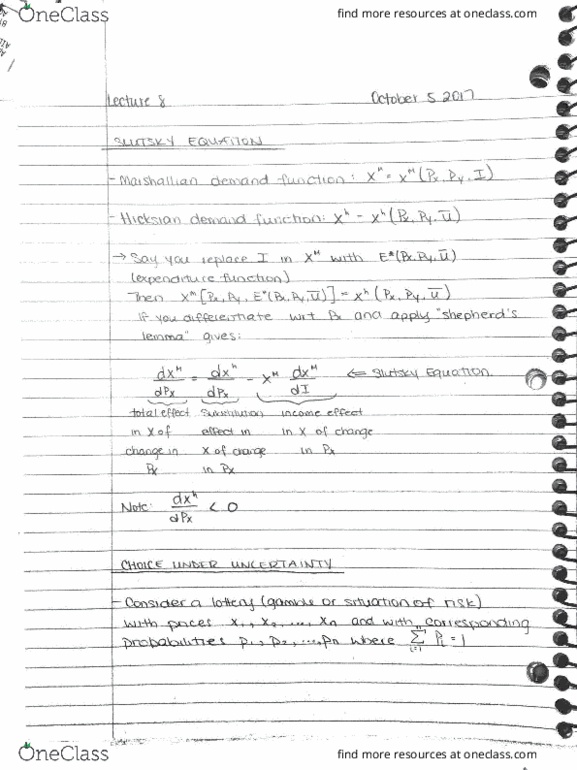 OneClass
find more resources at oneclass.com
Lecture 8
October 5 2017
SLUTSKY EQUATION
- Marshallian demand function: xᴹ = xᴹ (Px, Py, I)
- Hicksian demand function: xʰ - xʰ (Px, Py, U̅)
→ Say you replace I in xᴹ with E*(Px, Py, U̅)
(expenditure function)
Then xᴹ [Px, Py, E*(Px, Py, U̅)] = xʰ (Px, Py, U̅)
If you differentiate wrt Px and apply "shepherd's
lemma" gives:
dxᴹ/dPx = dxʰ/dPx - xᴹ dxᴹ/dI ⇐ Slutsky Equation
total effect Substitution income effect
in x of effect in in x of change
change in x of change in Px
Px in Px
Note: dxʰ/dPx < 0
CHOICE UNDER UNCERTAINTY
- Consider a lottery (gamble or situation of risk)
with prices x₁, x₂, ..., xn and with corresponding
probabilities p₁, p₂, ..., pn where ⁿΣᵢ₌₁ Pᵢ = 1
OneClass
find more resources at oneclass.com